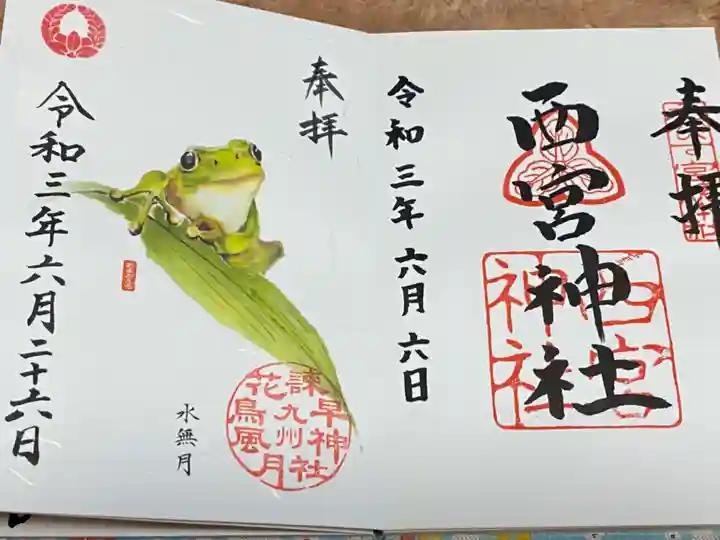 奉拝
西宮神社
西宮神社
令和三年六月六日
奉拝
水無月
諫早神社
九州
花鳥風月
令和三年六月二十六日